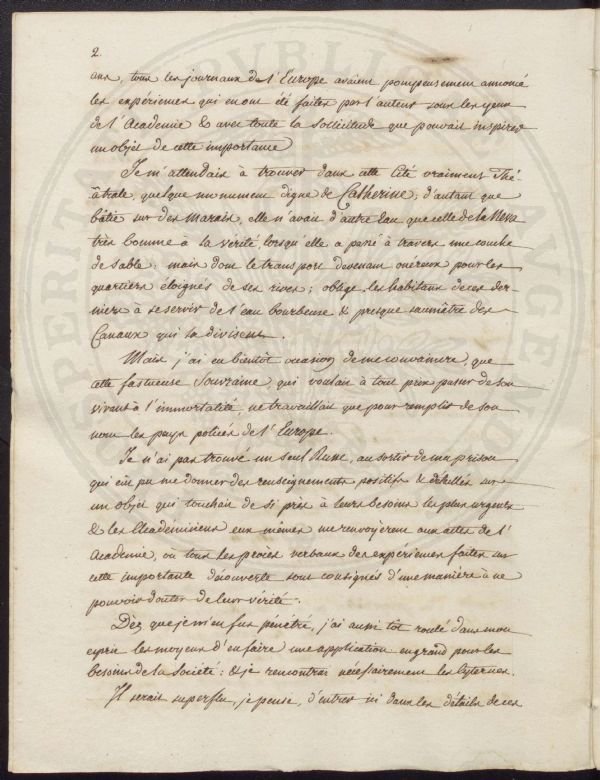 2.
ans, tous les journaux de l'Europe avaient pompeusement annoncé
les expériences qui en ont été faites par l'auteur sous les yeux
de l'Academie & avec toute la sollicitude que pouvait inspirer
un objet de cette importance
Je m'attendais à trouver dans cette Cité vraiment Thé-
âtrale, quelque monument digne de Catherine; d'autant que
bâtie sur des Marais, elle n'avait d'autre Eau que celle de la Neva
très bonne à la vérité, lorsqu'elle a passé à travers une couche
de sable; mais dont le transport devenant onéreux pour les
quartiers éloignés de ses rives; oblige les habitans de ces der-
niers à se servir de l'eau bourbeuse & presque saumâtre des
Canaux qui la divisent.
Mais j'ai eu bientôt occasion de me convaincre, que
cette fastueuse Souveraine, qui voulait à tout prix passer de son
vivant à l'immortalité ne travaillait que pour remplir de son
nom les pays policés de l'Europe.
Je n'ai pas trouvé un seul Russe, au sortir de ma prison
qui eût pu me donner des renseignements positifs & détaillés sur
un objet qui touchait de si près à leurs besoins les plus urgents
& les Académiciens eux mêmes me renvoyèrent aux actes de l'
Academie, où tous les procès verbaux des expériences faites sur
cette importante découverte sont consignés d'une manière à ne
pouvoir douter de leur vérité.
Dès que je m'en fus pénétré, j'ai aussi tôt roulé dans mon
esprit les moyens d'en faire une application en grand pour les
besoins de la Société: & je rencontrai nécessairement les Cyternes.
Il serait superflu, je pense, d'entrer ici dans les détails de ces
PERITA PVBLICO